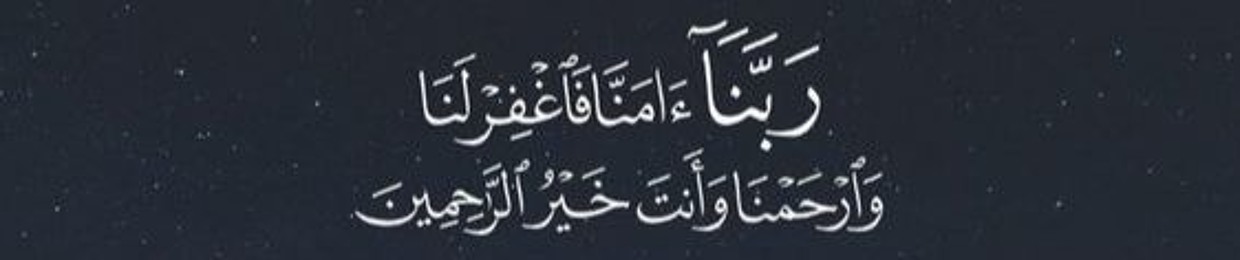 رَبَّنَآ ءَامَنَّا فَٱغْفِرْ لَنَا
وَٱرْحَمْنَا وَأَنتَ خَيْرُ ٱلرَّٰحِمِينَ